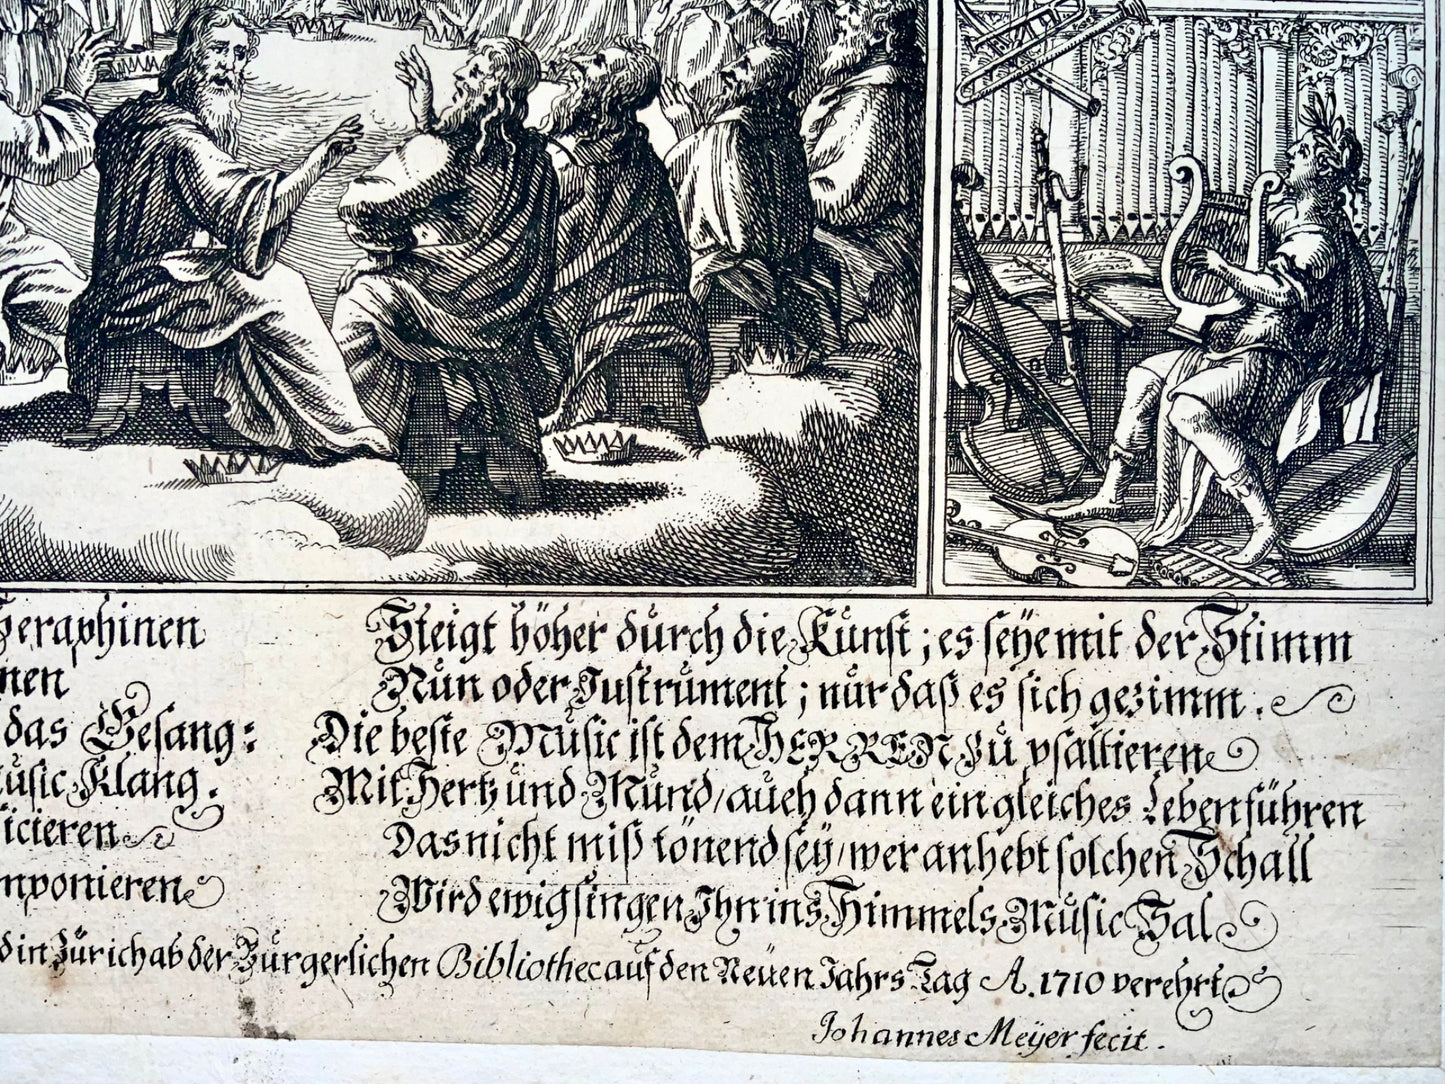 Seraphinen
nen
das Gesang:
Music Klang.
icieren
mponieren
Steigt höher dürch die Künst; es seÿe mit der Stimm
Nün oder Justrüment; nür daß es sich gezimm.
Die beste Müsic ist dem HERREN Zü psallieren
Mit Hertz ünd Münd, aüch dann ein gleiches Leben führen
Das nicht miß tönend seÿ, wer anhebt solchen Schall
Wird ewig singen Ihn ins Himmels Müsic Sal
d in Zürich ab der Bürgerlichen Bibliothec auf den Neüen Jahrs Tag A. 1710 verehrt
Johannes Meÿer fecit.